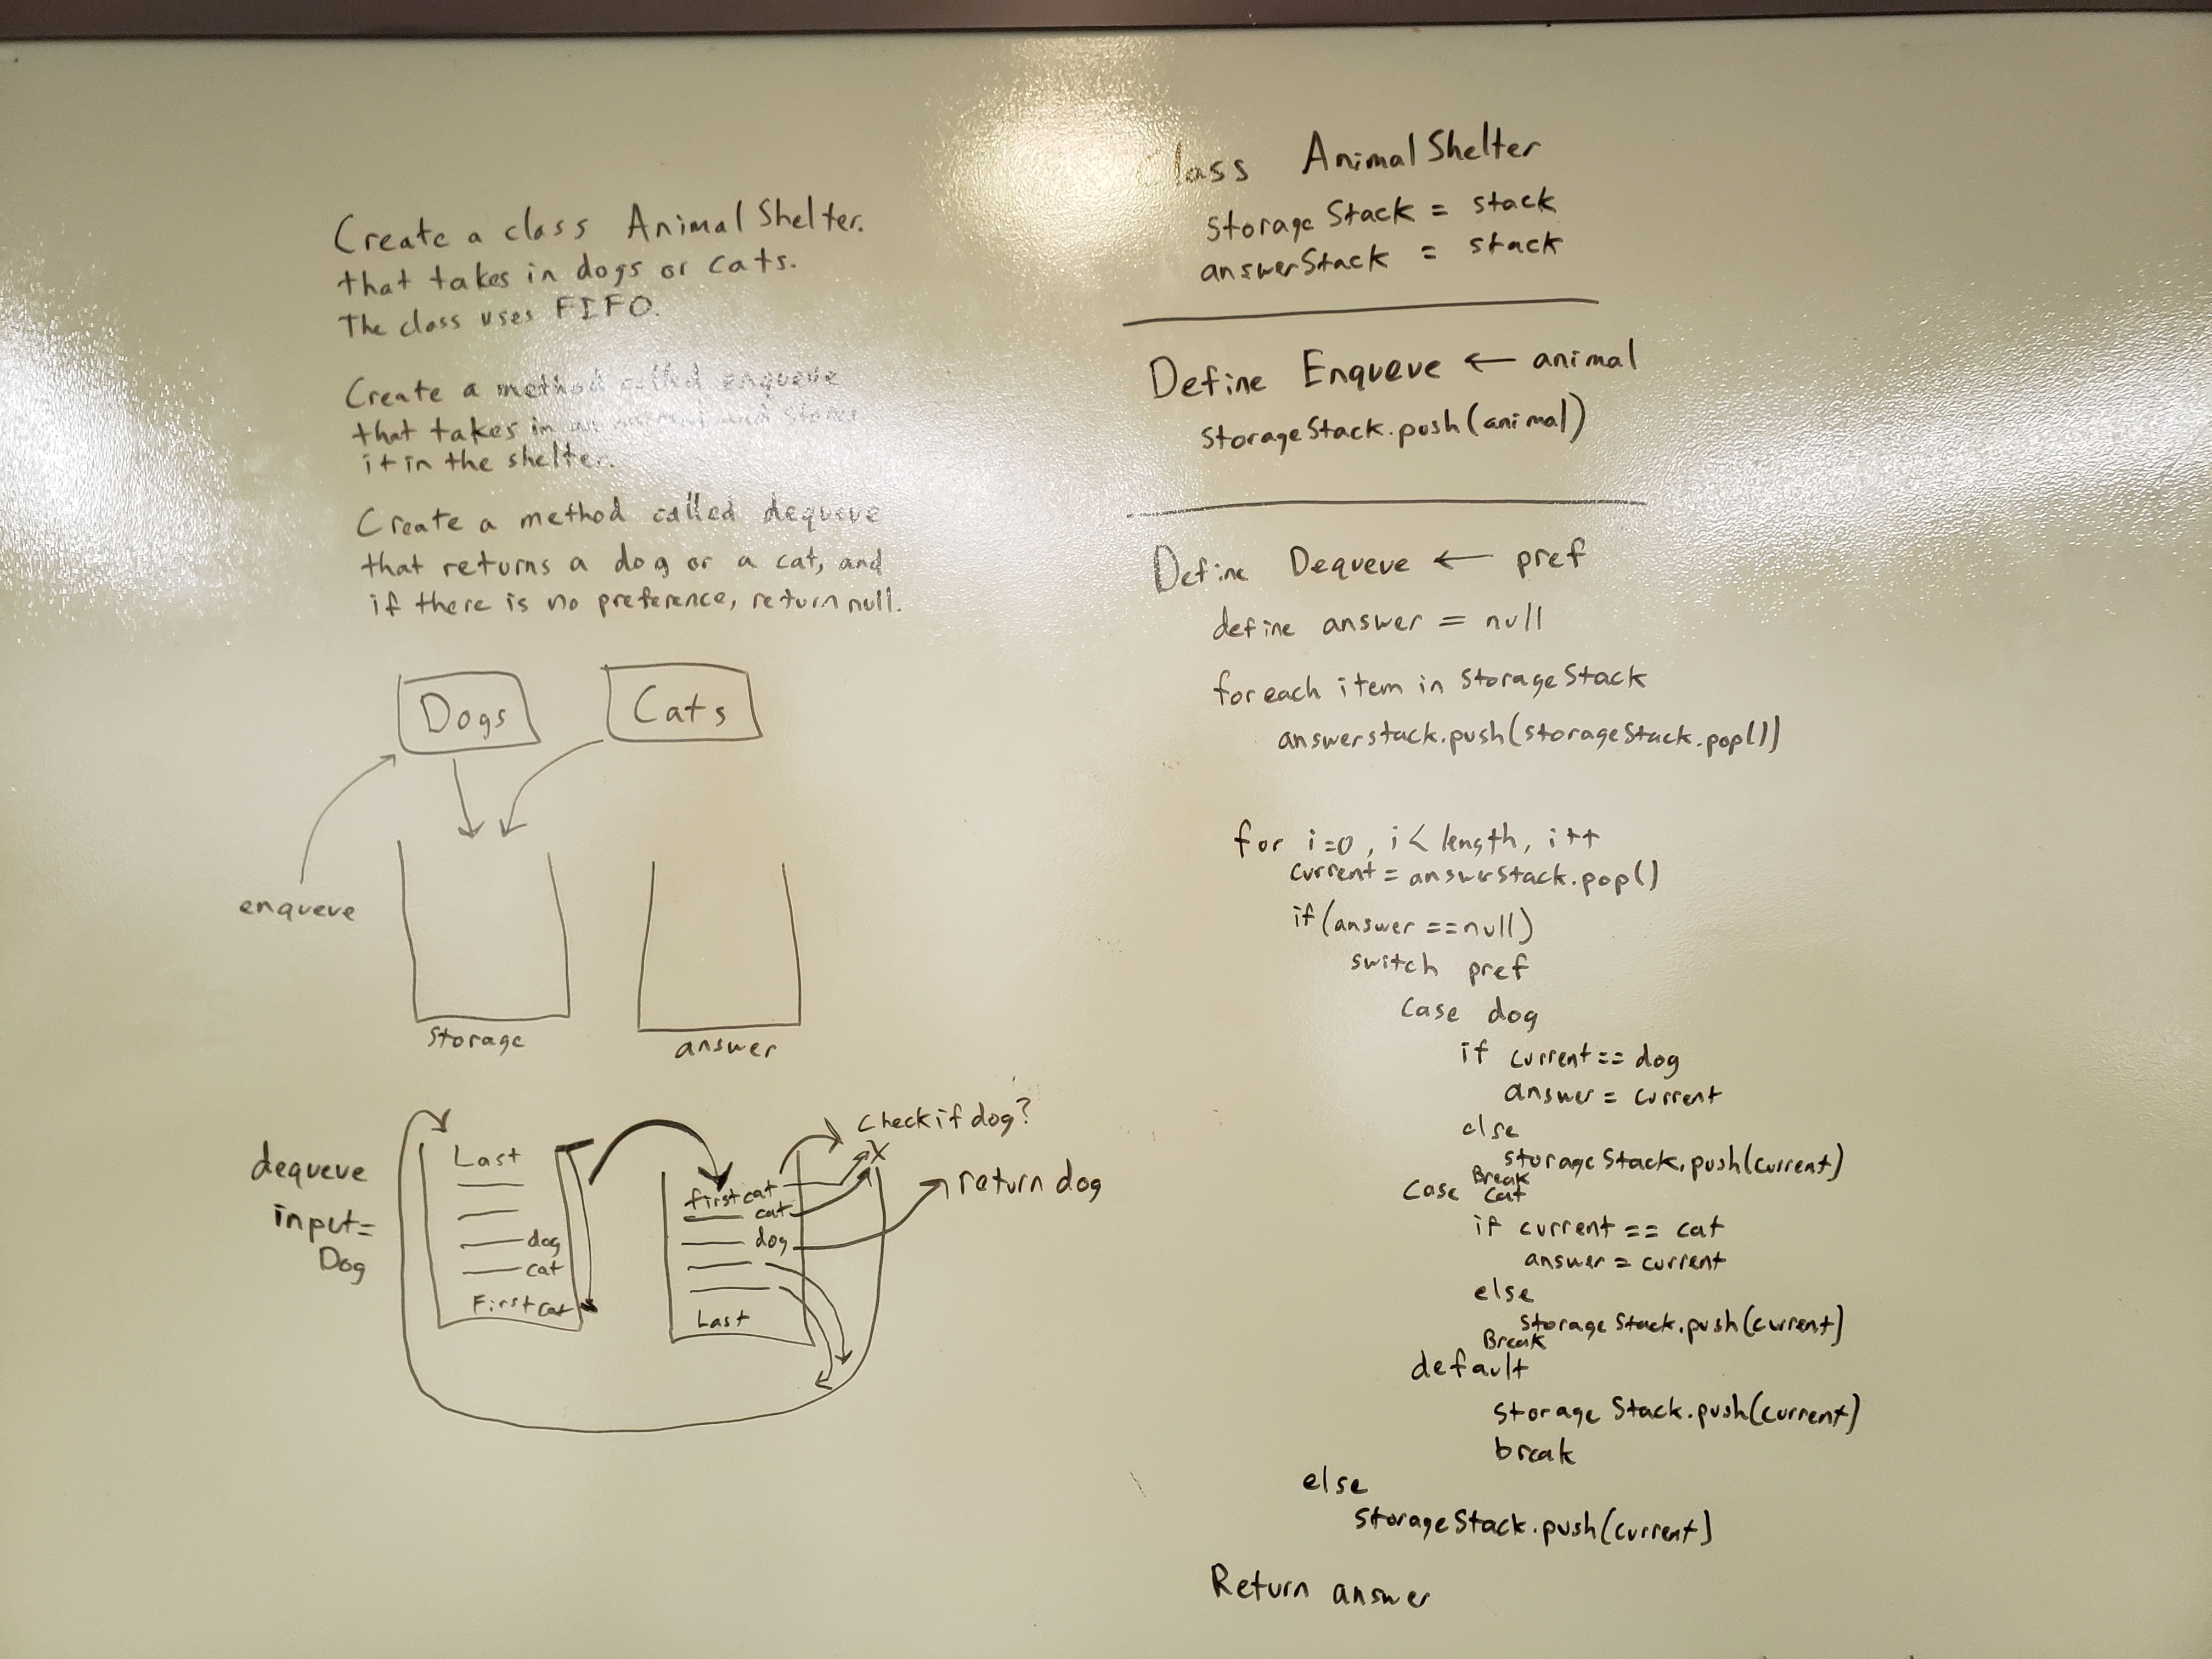 Create a class AnimalShelter.
that takes in dogs or cats.
The class uses FIFO.
Create a method called enqueue
that takes in an animal and stores
it in the shelter.
Create a method called dequeue
that returns a dog or a cat, and
if there is no preference, return null.
Dogs
Cats
enqueue
storage
answer
dequeue
input=
Dog
Last
dog
cat
First cat
first cat
cat
dog
Last
check if dog?
X
return dog
Class AnimalShelter
storageStack = stack
answerStack = stack
Define Enqueue ← animal
storageStack.push(animal)
Define Dequeue ← pref
define answer = null
foreach item in storageStack
answerstack.push(storageStack.pop())
for i=0, i< length, i++
current = answerStack.pop()
if(answer ==null)
switch pref
case dog
if current == dog
answer = current
else
storageStack.push(current)
Break
case cat
if current == cat
answer = current
else
storageStack.push(current)
Break
default
storageStack.push(current)
break
else
storageStack.push(current)
Return answer